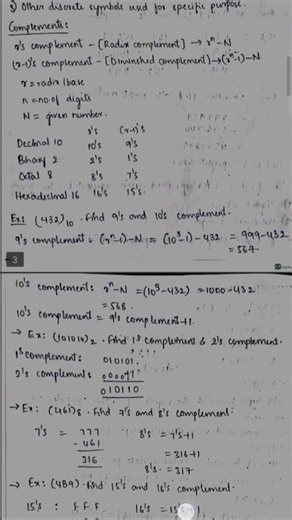 3) Other discrete symbols used for specific purpose.
Complements:
r's complement - [Radix complement] → rⁿ-N
(r-1)'s complement - [Diminished complement] → (rⁿ-1)-N
r = radix/base
n = no. of digits
N = given number.
r's (r-1)'s
Decimal 10 10's 9's
Binary 2 2's 1's
Octal 8 8's 7's
Hexadecimal 16 16's 15's
Ex: (432)₁₀ . find 9's and 10's complement.
9's complement = (rⁿ-1)-N = (10³-1)-432 = 999-432
= 567
3
10's complement: rⁿ-N = (10³-432) = 1000-432
= 568.
10's complement = 9's complement+1.
→ Ex: (101010)₂ . Find 1's complement & 2's complement.
1's complement: 010101.
2's complement: 000001
010110
→ Ex: (461)₈ . find 7's and 8's complement.
7's = 777 8's = 7's+1
- 461 = 316+1
216 8's = 317
→ Ex: (4B9) . find 15's and 16's complement.
15's : F F F 16's = 15's+1